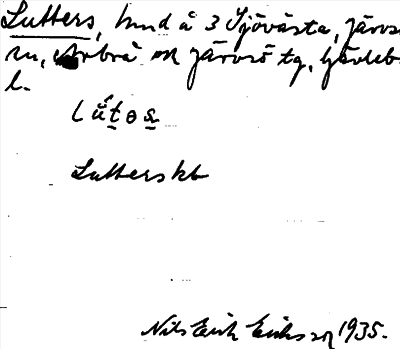 Lutters, hmd å 3 Sjövästa, Järvsö
sn, Arbrå o Järvsö tg, Gävleb.
l.
Lŭ́tes
Lutters kb
Nils Erik Eriksson 1935.